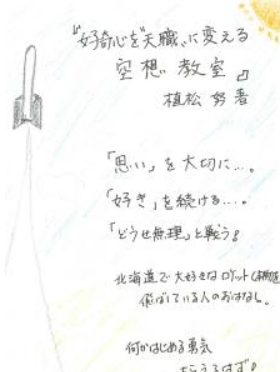 "好奇心を"天職"に変える
空想教室』
植松 努 著
「思い」を大切に…。
「好き」を続ける…。
「どうせ無理」と戦う!
北海道で大好きなロケット(本物)を
飛ばしている人のおはなし。
何かはじめる勇気
もらえるはず!